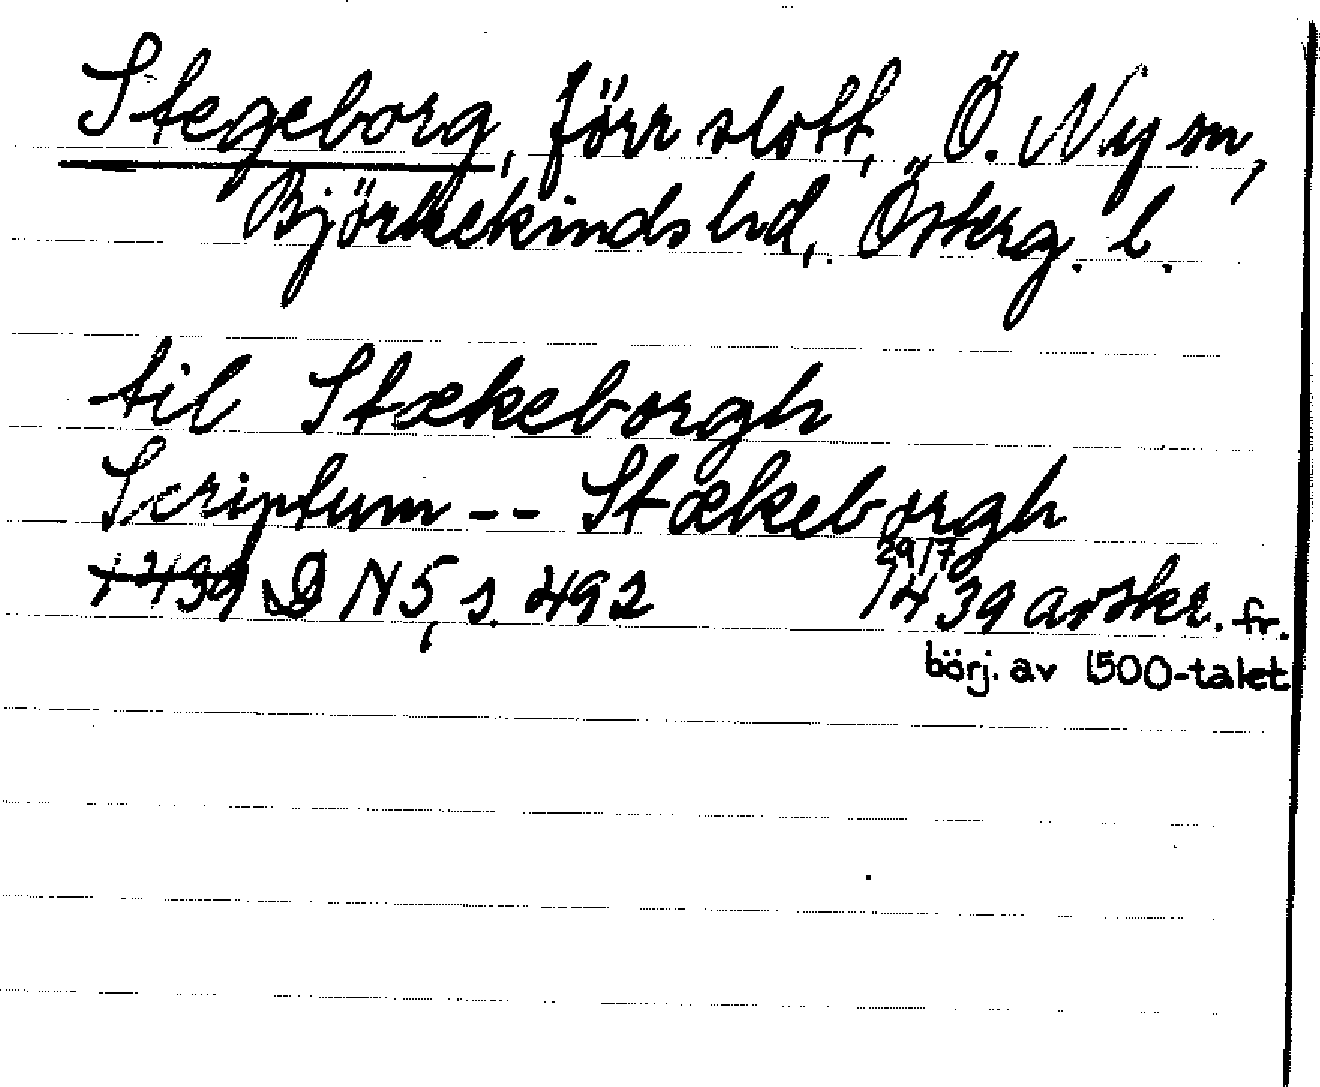 Stegeborg, förr slott, Ö. Ny sn,
Björkekinds hd, Österg. l.
til Stækeborgh
Scriptum -- Stækeborgh
1439 DN 5, s. 492 29/7 1439 avskr. fr.
börj. av 1500-talet